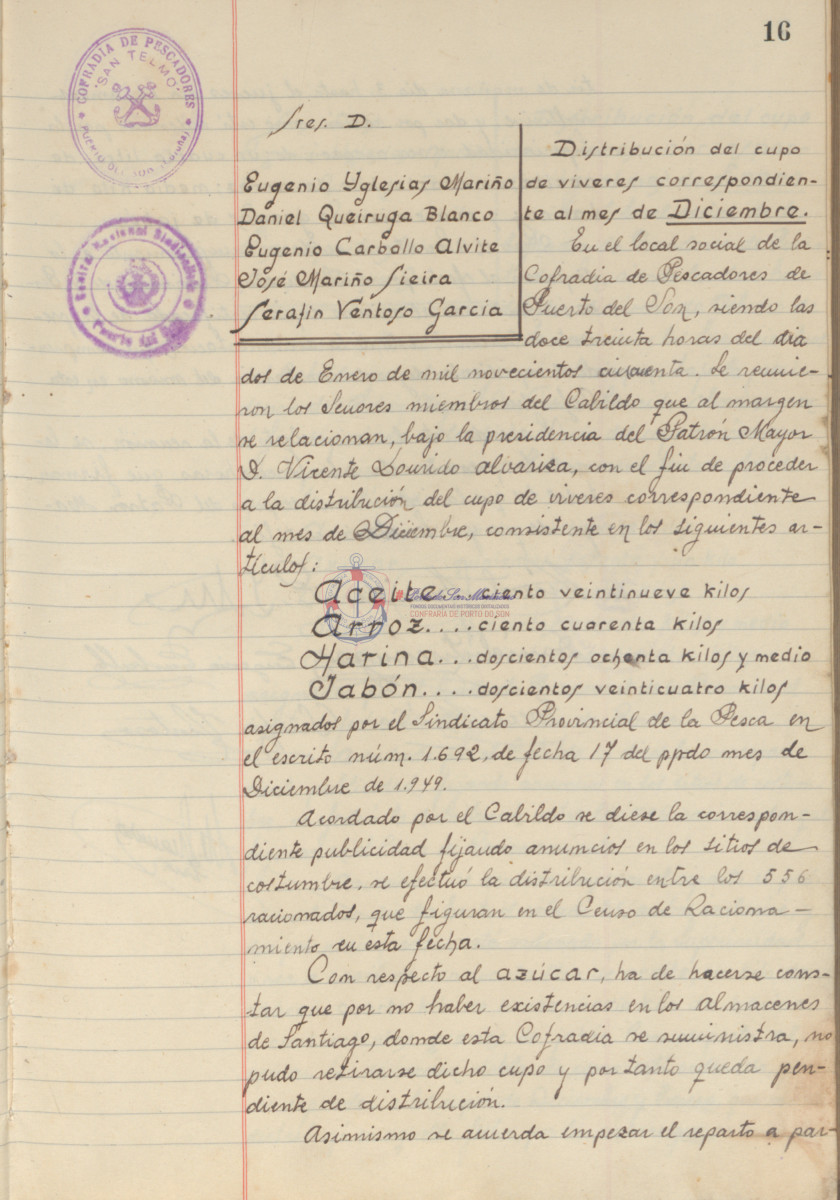 16
COFRADIA DE PESCADORES
"SAN TELMO"
PUERTO DEL SON (Coruña)
Central Nacional Sindicalista
Puerto del Son
Sres. D.
Eugenio Yglesias Mariño
Daniel Queiruga Blanco
Eugenio Carbollo Alvite
José Mariño Sieira
Serafin Ventoso Garcia
Distribución del cupo
de viveres correspondien-
te al mes de Diciembre.
En el local social de la
Cofradia de Pescadores de
Puerto del Son, siendo las
doce treinta horas del dia
dos de Enero de mil novecientos cincuenta. Se reunie-
ron los Señores miembros del Cabildo que al margen
se relacionan, bajo la presidencia del Patrón Mayor
D. Vicente Lourido Alvariza, con el fin de proceder
a la distribución del cupo de viveres correspondiente
al mes de Diciembre, consistente en los siguientes ar-
tículos:
Aceite... ciento veintinueve kilos
Arroz.... ciento cuarenta kilos
Harina... doscientos ochenta kilos y medio
Jabón.... doscientos veinticuatro kilos
FONDOS DOCUMENTAIS HISTÓRICOS DIXITALIZADOS
CONFRARÍA DE PORTO DO SON
asignados por el Sindicato Provincial de la Pesca en
el escrito núm. 1.692, de fecha 17 del ppdo mes de
Diciembre de 1.949.
Acordado por el Cabildo se diese la correspon-
diente publicidad fijando anuncios en los sitios de
costumbre, se efectuó la distribución entre los 556
racionados, que figuran en el Censo de Raciona-
miento en esta fecha.
Con respecto al azúcar, ha de hacerse cons-
tar que por no haber existencias en los almacenes
de Santiago, donde esta Cofradia se suministra, no
pudo retirarse dicho cupo y por tanto queda pen-
diente de distribución.
Asimismo se acuerda empezar el reparto a par-